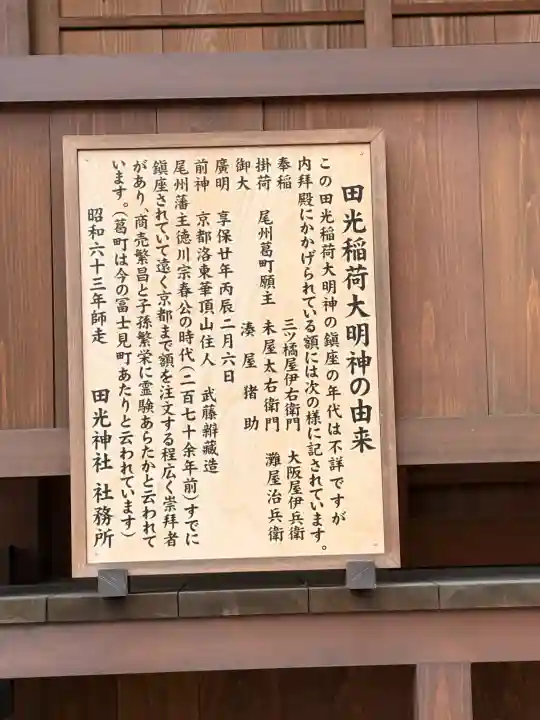 田光稲荷大明神の由来
この田光稲荷大明神の鎮座の年代は不詳ですが
内拝殿にかかげられている額には次の様に記されています。
奉稲　三ツ橘屋伊右衛門　大阪屋伊兵衛
掛荷　尾州葛町願主　未屋太右衛門　灘屋治兵衛
御大　湊屋猪助
廣明　享保廿年丙辰二月六日
前神　京都洛東華頂山住人　武藤辦藏造
尾州藩主徳川宗春公の時代(二百七十余年前)すでに
鎮座されていて遠く京都まで額を注文する程広く崇拝者
があり、商売繁昌と子孫繁栄に霊験あらたかと云われて
います。(葛町は今の冨士見町あたりと云われています)
昭和六十三年師走　田光神社 社務所